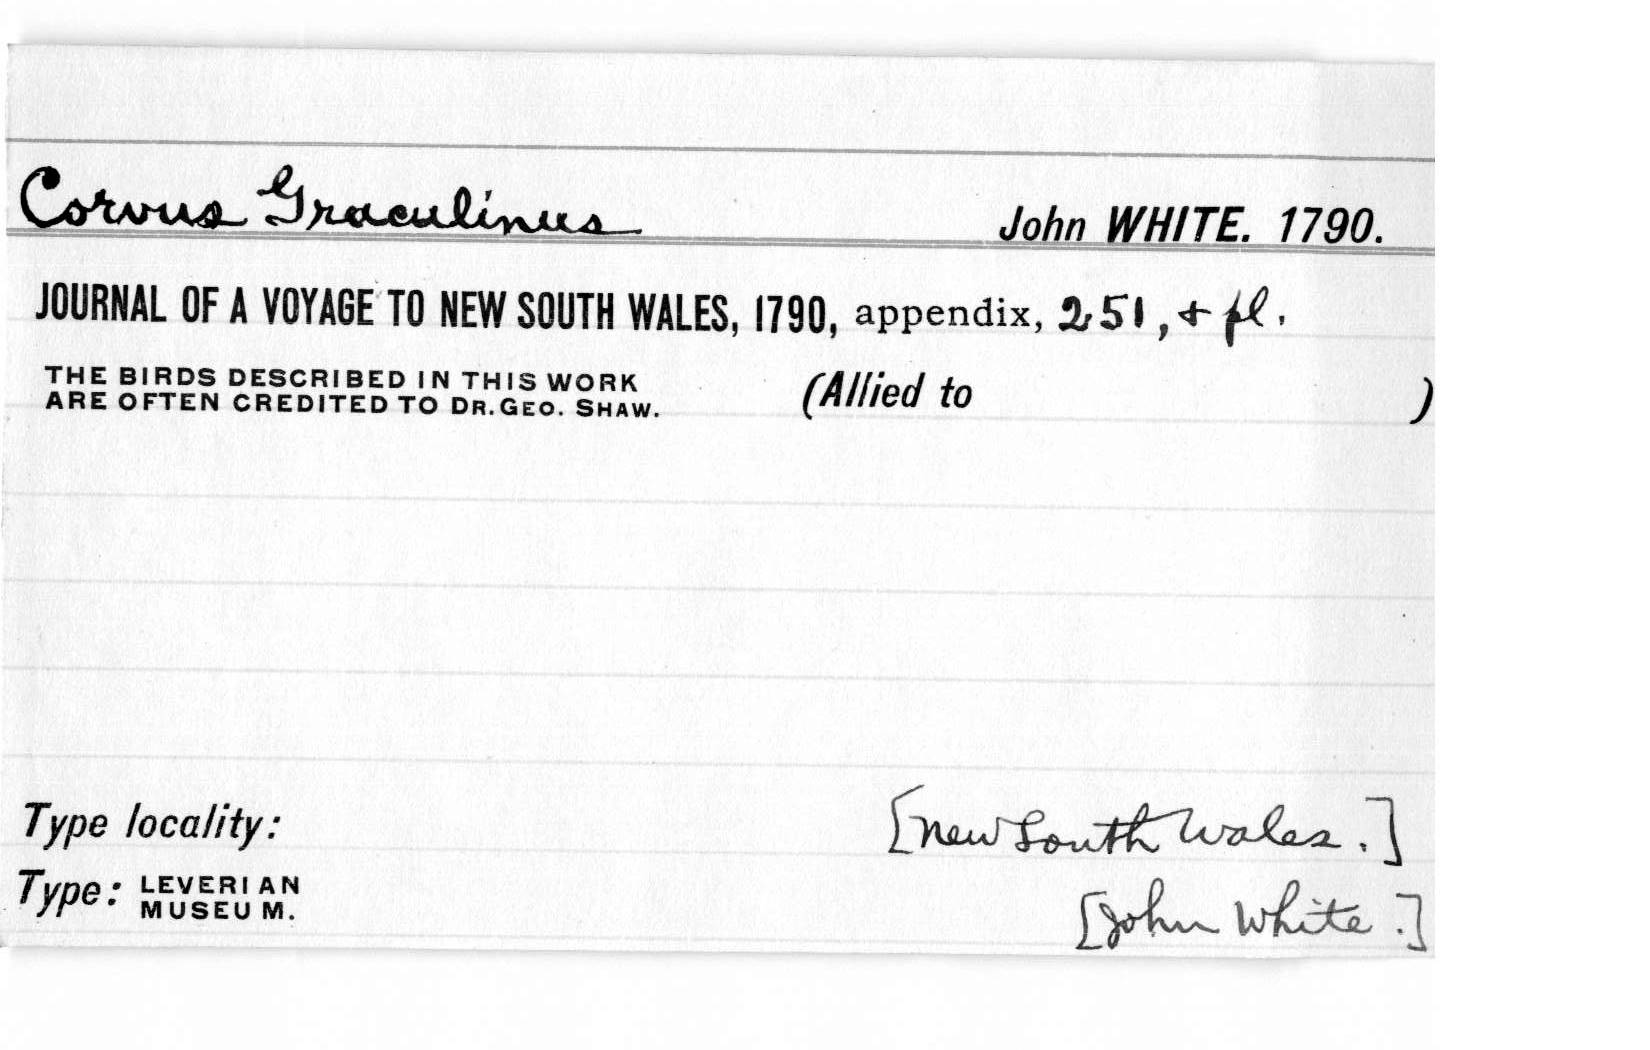 Corvus Graculinus John WHITE. 1790.
JOURNAL OF A VOYAGE TO NEW SOUTH WALES, 1790, appendix, 251, + pl.
THE BIRDS DESCRIBED IN THIS WORK
ARE OFTEN CREDITED TO DR. GEO. SHAW.
(Allied to )
Type locality: [New South Wales.]
Type: LEVERIAN
MUSEUM.
[John White.]